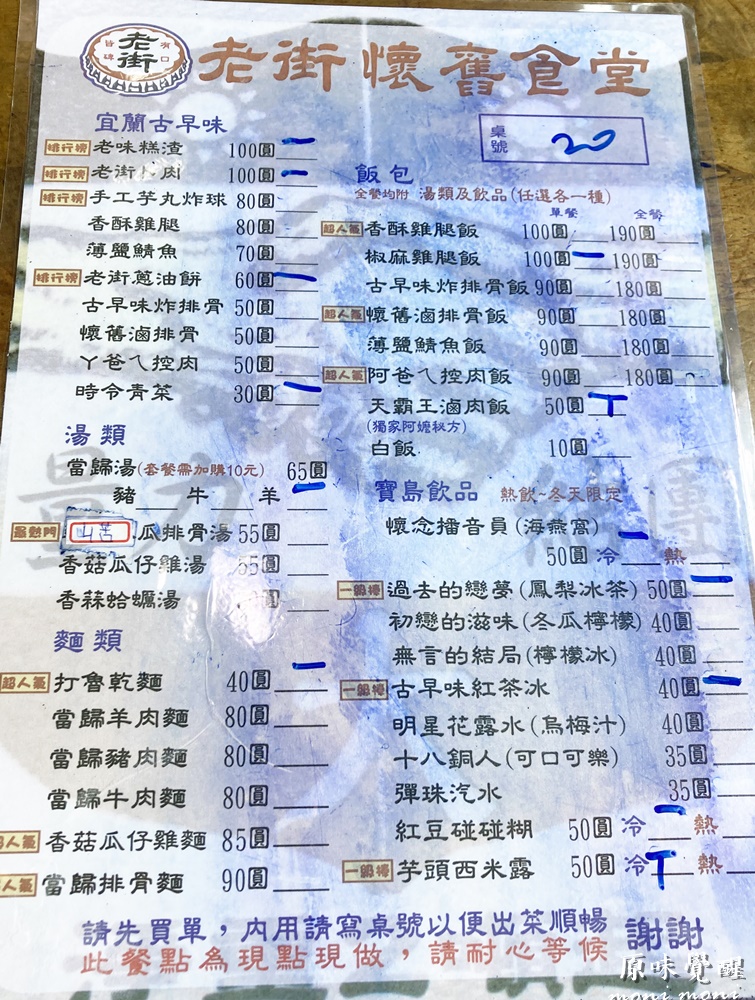 老街
皆碑
有口
老街懷舊食堂
桌號 20
宜蘭古早味
排行榜 老味糕渣 100圓
排行榜 老街 肉 100圓
排行榜 手工芋丸炸球 80圓
香酥雞腿 80圓
薄鹽鯖魚 70圓
排行榜 老街蔥油餅 60圓
古早味炸排骨 50圓
懷舊滷排骨 50圓
ㄚ爸ㄟ控肉 50圓
時令青菜 30圓
湯類
當歸湯(套餐需加購10元) 65圓
豬 牛 羊
最熱門 山苦瓜排骨湯 55圓
香菇瓜仔雞湯 55圓
香蒜蛤蠣湯
麵類
超人氣 打魯乾麵 40圓
當歸羊肉麵 80圓
當歸豬肉麵 80圓
當歸牛肉麵 80圓
超人氣 香菇瓜仔雞麵 85圓
超人氣 當歸排骨麵 90圓
飯包
全餐均附 湯類及飲品(任選各一種)
單餐 全餐
超人氣 香酥雞腿飯 100圓 190圓
椒麻雞腿飯 100圓 190圓
古早味炸排骨飯 90圓 180圓
超人氣 懷舊滷排骨飯 90圓 180圓
薄鹽鯖魚飯 90圓 180圓
超人氣 阿爸ㄟ控肉飯 90圓 180圓
天霸王滷肉飯 50圓 丅
(獨家阿嬤秘方)
白飯 10圓
寶島飲品 熱飲~冬天限定
懷念播音員(海燕窩)
50圓 冷 熱
一級棒 過去的戀夢(鳳梨冰茶) 50圓
初戀的滋味(冬瓜檸檬) 40圓
無言的結局(檸檬冰) 40圓
一級棒 古早味紅茶冰 40圓
明星花露水(烏梅汁) 40圓
十八銅人(可口可樂) 35圓
彈珠汽水 35圓
紅豆碰碰糊 50圓 冷 熱
一級棒 芋頭西米露 50圓 冷 丅 熱
請先買單，內用請寫桌號以便出菜順暢
此餐點為現點現做，請耐心等候
謝謝
原味覺醒
moni moni